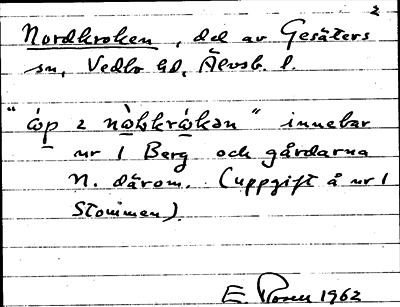 2
Nordkroken, del av Gesäters
sn, Vedbo hd, Älvsb. l.
"ɷ́p ɩ nɷ̀ɫkrɷ́kən" innebar
nr 1 Berg och gårdarna
N. därom. (uppgift å nr 1
Stommen).
E Rosen 1962